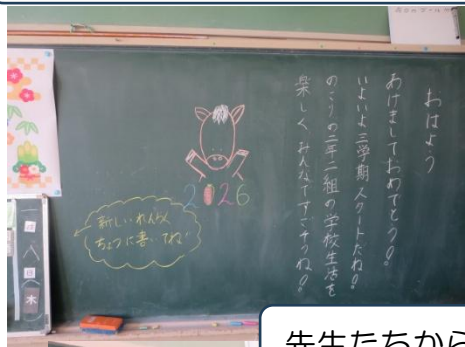 おはよう
あけましておめでとう!
いよいよ三学期スタートだね!
のこりの二年二組の学校生活を
楽しくみんなですごそうね!
2026
新しいれんらく
ちょうに書いてね!
八
木
先生たちから